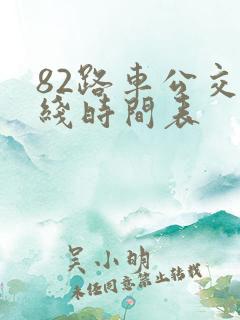 82路車公交
綫時間表
吴小明
未经同意禁止转载